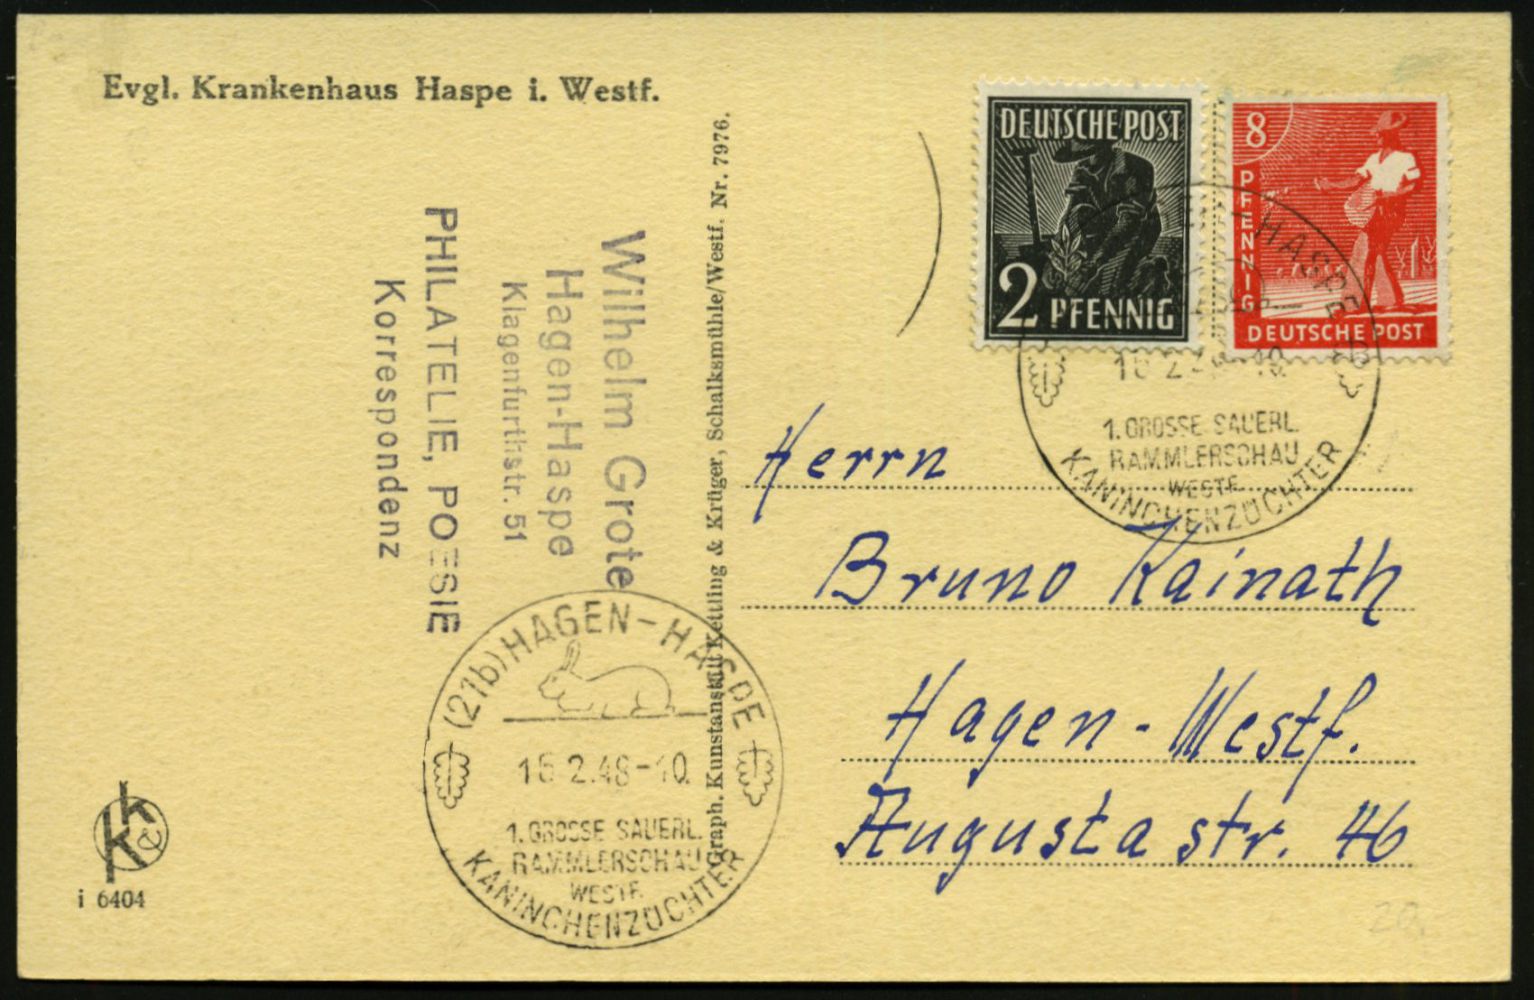 Evgl. Krankenhaus Haspe i. Westf.
DEUTSCHE POST
2 PFENNIG
8
PFENNIG
DEUTSCHE POST
HASPE
1. GROSSE SAUERL.
RAMMLERSCHAU
WESTF.
KANINCHENZÜCHTER
Graph. Kunstanstalt Kettling & Krüger, Schalksmühle/Westf. Nr. 7976.
Wilhelm Grote
Hagen-Haspe
Klagenfurthstr. 51
PHILATELIE, POESIE
Korrespondenz
Herrn
Bruno Kainath
Hagen-Westf.
Augusta str. 46
(21b) HAGEN-HASPE
2.48-10
1. GROSSE SAUERL.
RAMMLERSCHAU
WESTF.
KANINCHENZÜCHTER
k&k
i 6404